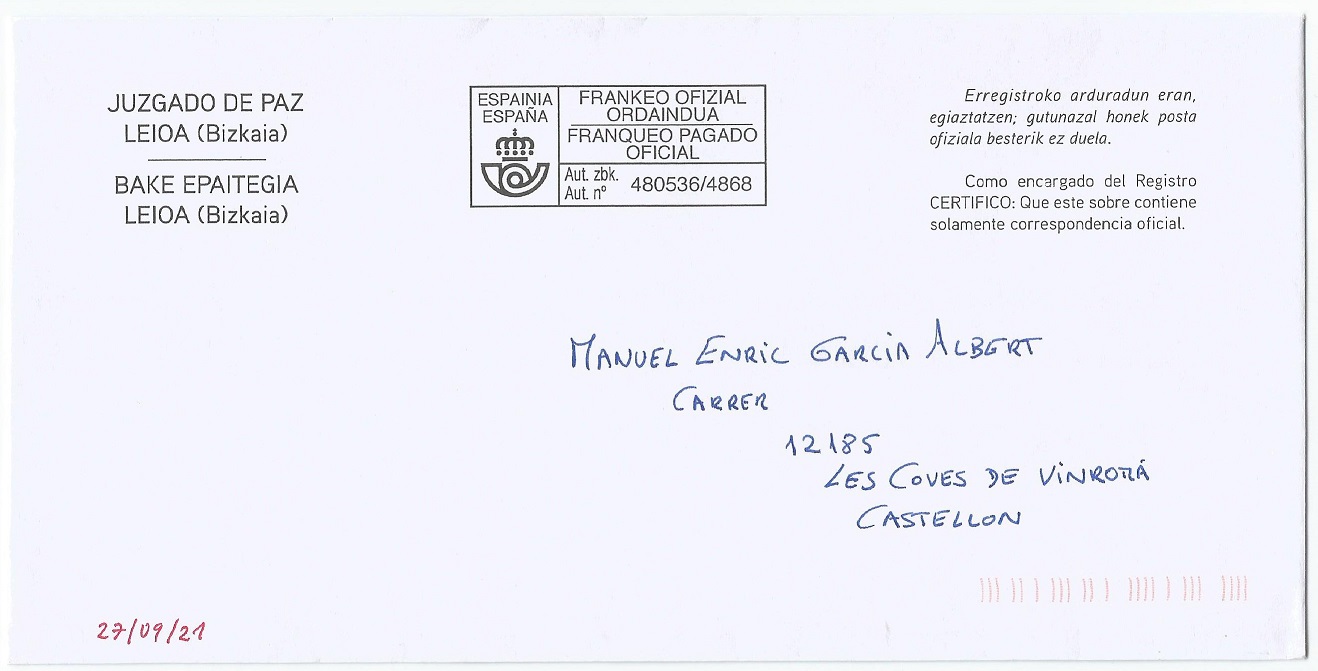 JUZGADO DE PAZ
LEIOA (Bizkaia)
BAKE EPAITEGIA
LEIOA (Bizkaia)
ESPAINIA
ESPAÑA
FRANKEO OFIZIAL
ORDAINDUA
FRANQUEO PAGADO
OFICIAL
Aut. zbk.
Aut. nº
480536/4868
Erregistroko arduradun eran,
egiaztatzen; gutunazal honek posta
ofiziala besterik ez duela.
Como encargado del Registro
CERTIFICO: Que este sobre contiene
solamente correspondencia oficial.
MANUEL ENRIC GARCIA ALBERT
CARRER
12185
LES COVES DE VINROMÁ
CASTELLON
27/09/21